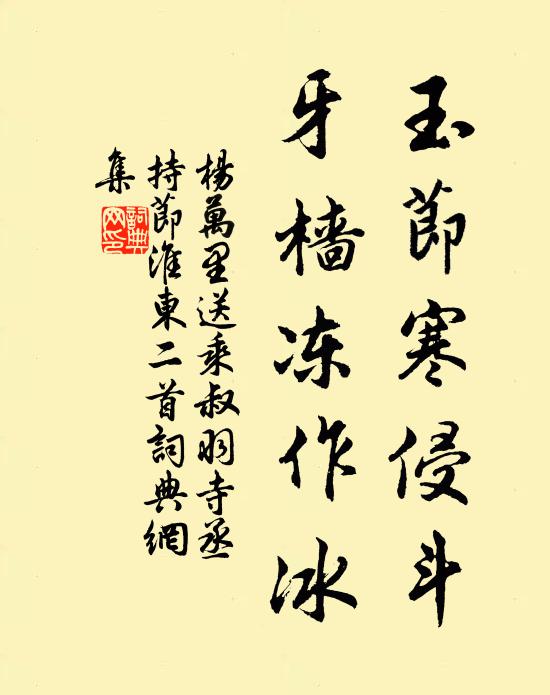 玉節寒侵斗
牙檣冻作冰
楊萬里送乘叔羽寺丞
持節淮東二首詞典網
集
詞典
网印